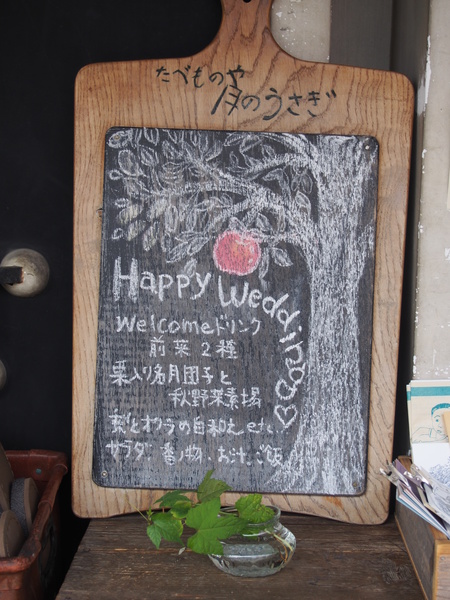 たべものや
月のうさぎ
Happy Wedding
Welcomeドリンク
前菜2種
栗入り名月団子と
秋野菜素揚
梨とオクラの白和え etc.
サラダ、香の物、お汁、ご飯